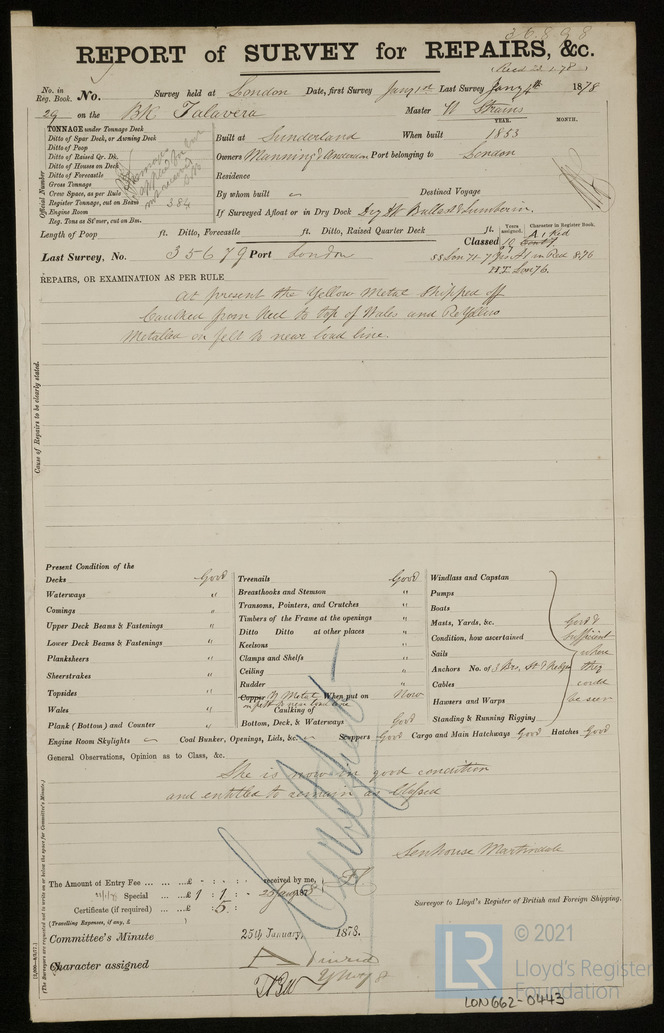 36898
REPORT of SURVEY for REPAIRS, &c.
No. in Reg. Book. No. Survey held at London Date, first Survey Jany 1st Last Survey Jany 4th 1878
29 on the BK Talavera Master W Strains
YEAR. MONTH.
TONNAGE under Tonnage Deck
Ditto of Spar Deck, or Awning Deck
Ditto of Poop
Ditto of Raised Qr. Dk.
Ditto of Houses on Deck
Ditto of Forecastle
Gross Tonnage
Crew Space, as per Rule
Register Tonnage, cut on Beam 384
Engine Room
Reg. Tons as St'mr, cut on Bm.
Official Number
Built at Sunderland When built 1853
Owners Manning & Anderson Port belonging to London
Residence
By whom built " Destined Voyage
If Surveyed Afloat or in Dry Dock Dry Dk Ballast & Lumber in.
Length of Poop ft. Ditto, Forecastle ft. Ditto, Raised Quarter Deck ft.
Years assigned. Character in Register Book.
Classed 10 A 1 Red
Last Survey, No. 35679 Port London
REPAIRS, OR EXAMINATION AS PER RULE
At present the Yellow Metal Stripped off
Caulked from Keel to top of Wales and ReYellow
Metalled on felt to near load line.
Cause of Repairs to be clearly stated.
Present Condition of the
Decks Good
Waterways "
Comings "
Upper Deck Beams & Fastenings "
Lower Deck Beams & Fastenings "
Planksheers "
Sheerstrakes "
Topsides "
Wales "
Plank (Bottom) and Counter "
Treenails Good
Breasthooks and Stemson "
Transoms, Pointers, and Crutches "
Timbers of the Frame at the openings "
Ditto Ditto at other places "
Keelsons "
Clamps and Shelfs "
Ceiling "
Rudder "
Copper Y Metal When put on Now
on felt to near load line
Caulking of
Bottom, Deck, & Waterways Good
Windlass and Capstan
Pumps
Boats
Masts, Yards, &c. Good &
Condition, how ascertained Sufficient
Sails where
Anchors No. of 3 Brs, St & Kedges they
Cables could
Hawsers and Warps be seen
Standing & Running Rigging
Engine Room Skylights Coal Bunker, Openings, Lids, &c. Scuppers Good Cargo and Main Hatchways Good Hatches Good
General Observations, Opinion as to Class, &c.
She is now in good condition
and entitled to remain as Classed
Senhouse Martindale
Surveyor to Lloyd's Register of British and Foreign Shipping.
The Amount of Entry Fee ... ... ...£ : : received by me,
Special ... £ 1 : 1 : 25 Jany 1878
Certificate (if required) ... £ : 5 :
(Travelling Expenses, if any, £ )
Committee's Minute 25th January, 1878.
Character assigned A 1 in red
(The Surveyors are requested not to write on or below the space for Committee's Minute.)
© 2021
LR
Lloyd's Register
Foundation
LON662-0443